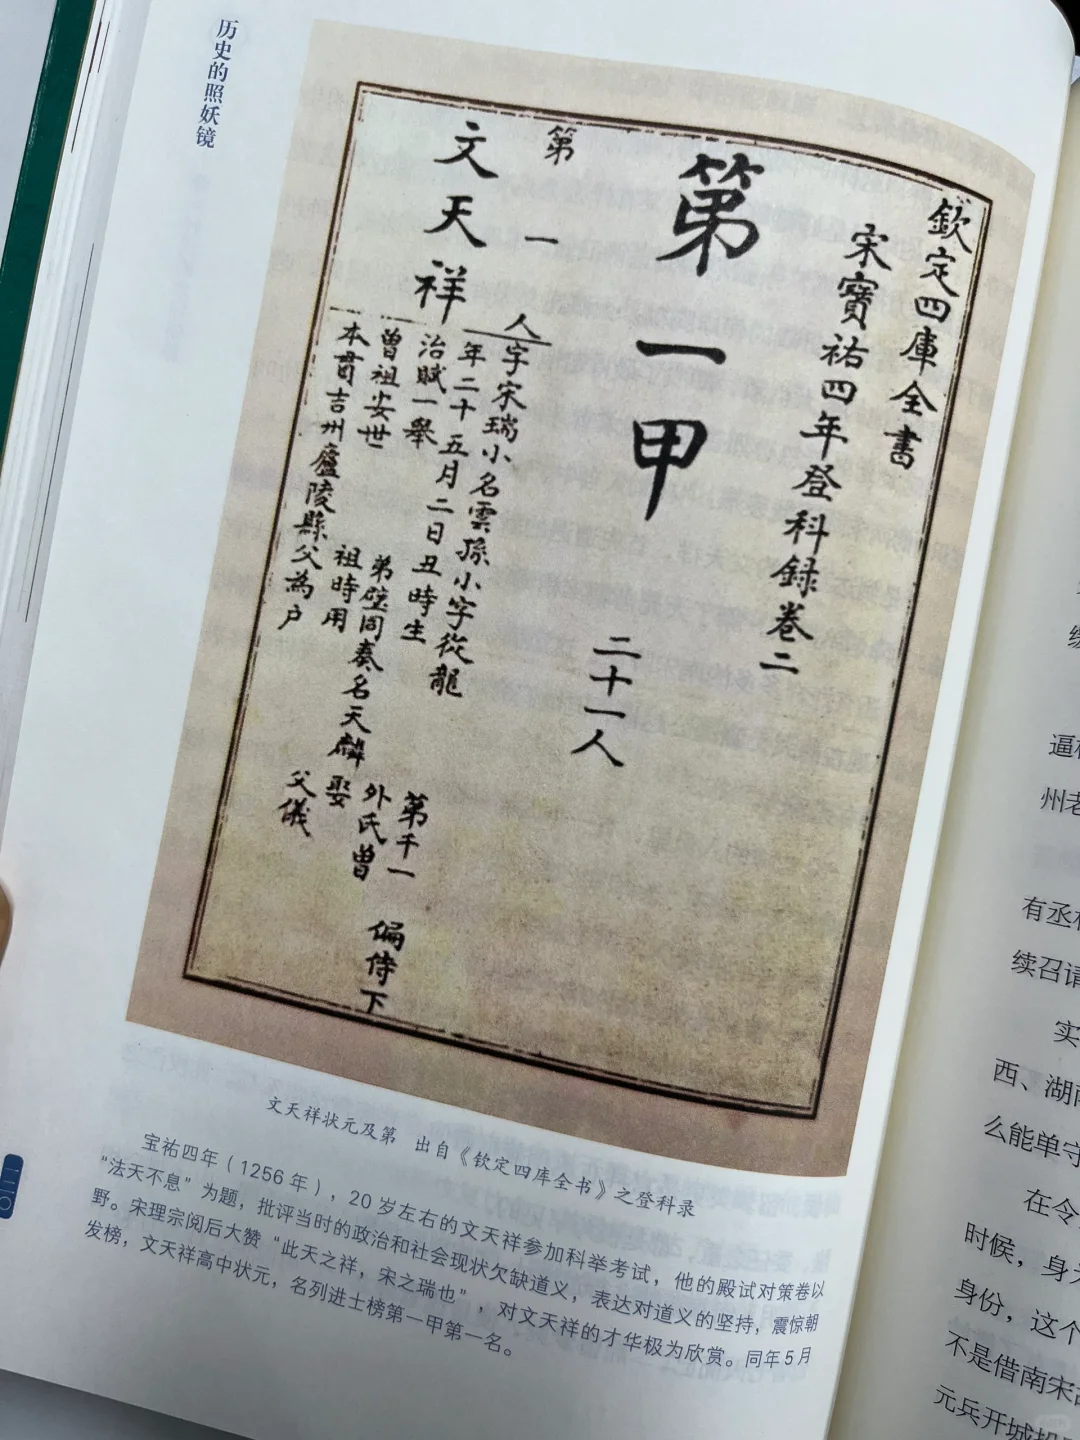 历史的照妖镜
欽定四庫全書
宋寶祐四年登科録卷二
第一甲 二十一人
第一人
文天祥
字宋瑞小名雲孫小字從龍 第千一 偏侍下
年二十五月二日丑時生 外氏曾
治賦一舉 弟璧同奏名天麟 娶
曾祖安世 祖時用 父儀
本貫吉州廬陵縣父為户
文天祥状元及第 出自《钦定四库全书》之登科录
宝祐四年（1256年），20岁左右的文天祥参加科举考试，他的殿试对策卷以
“法天不息”为题，批评当时的政治和社会现状欠缺道义，表达对道义的坚持，震惊朝
野。宋理宗阅后大赞“此天之祥，宋之瑞也”，对文天祥的才华极为欣赏。同年5月
发榜，文天祥高中状元，名列进士榜第一甲第一名。
一二〇
逼
州老
有丞
续召请
实
西、湖南
么能单守
在令
时候，身
身份，这个
不是借南宋
元兵开城